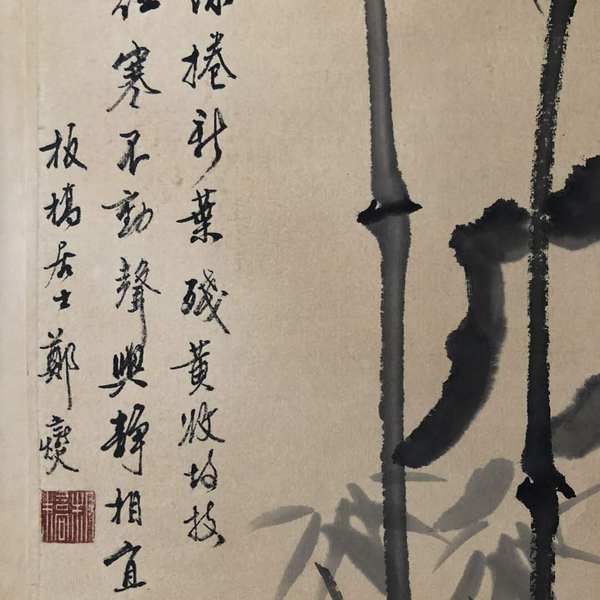 捲新葉殘黃收故枝
寒不動聲與靜相宜
板橋居士鄭燮